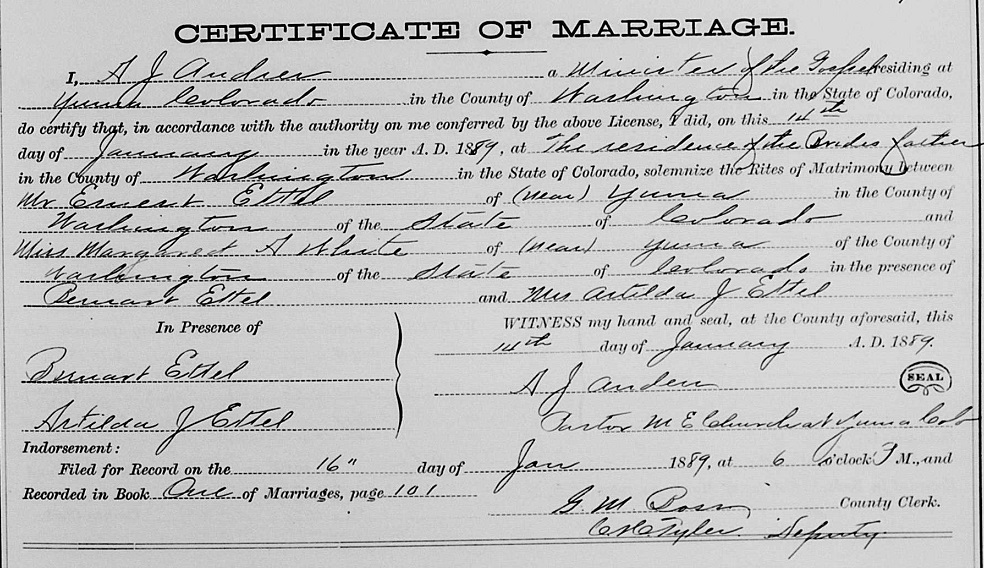 CERTIFICATE OF MARRIAGE.
I, A J Anders a Minister of the Gospel residing at
Yuma Colorado in the County of Washington in the State of Colorado,
do certify that, in accordance with the authority on me conferred by the above License, I did, on this 14th
day of January in the year A. D. 1889, at The residence of the Brides father
in the County of Washington in the State of Colorado, solemnize the Rites of Matrimony between
Mr Ernest Ettel of (near) Yuma in the County of
Washington of the State of Colorado and
Miss Margaret A White of (near) Yuma of the County of
Washington of the State of Colorado in the presence of
Bernart Ettel and Mrs Artilda J Ettel
In Presence of
WITNESS my hand and seal, at the County aforesaid, this
14th day of January A. D. 1889.
Bernart Ettel
A J Anders SEAL
Artilda J Ettel
Pastor M E Church at Yuma Colo
Indorsement:
Filed for Record on the 16" day of Jan 1889, at 6 o'clock P M., and
Recorded in Book One of Marriages, page 101
G. M. Ross County Clerk.
Tyler Deputy